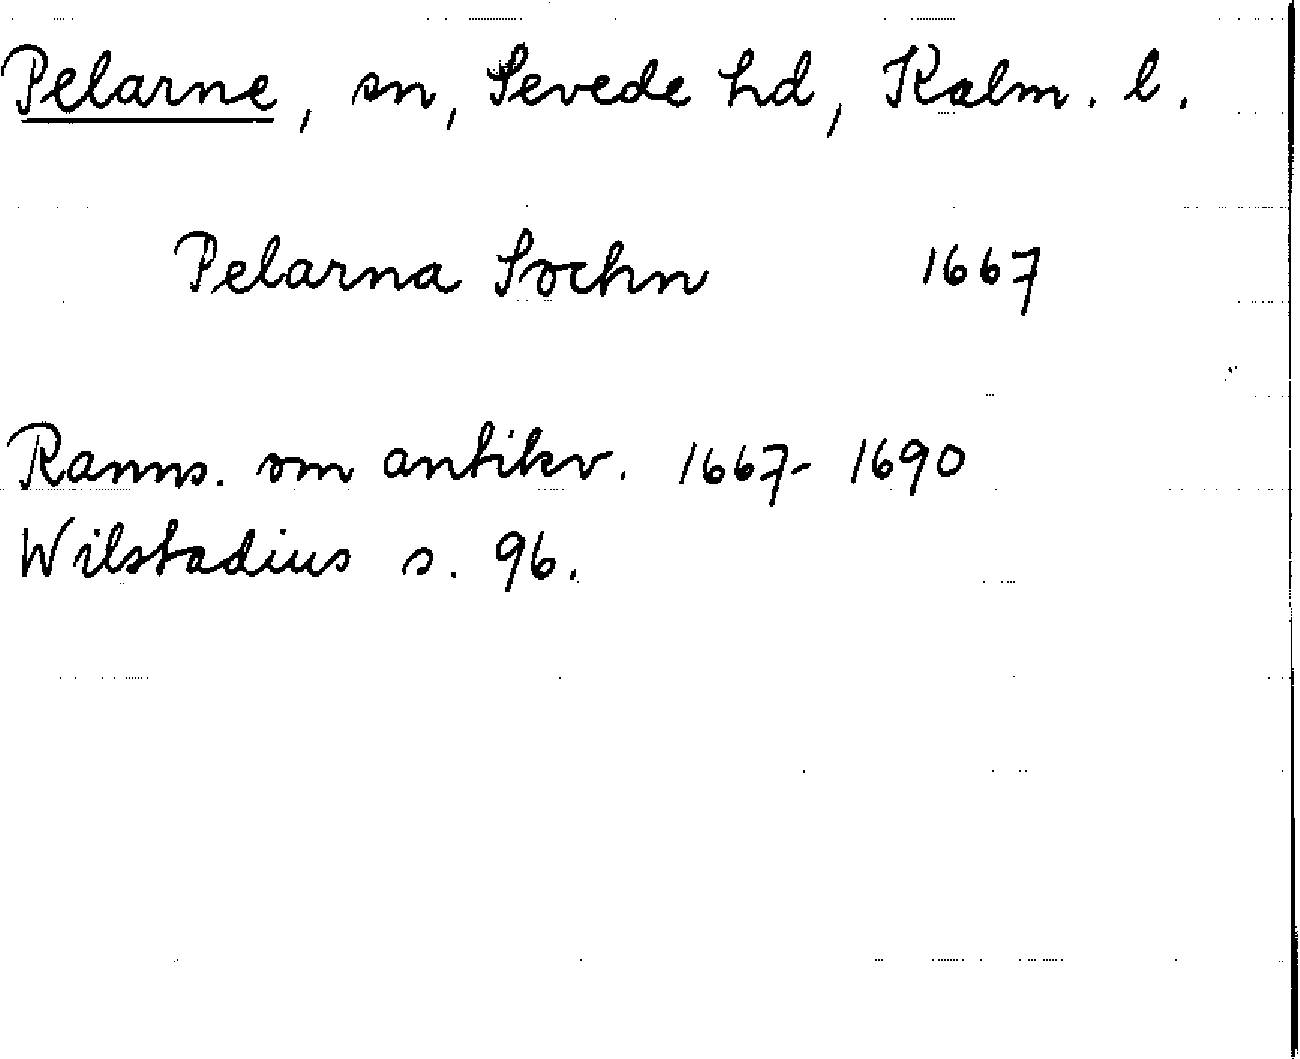 Pelarne, sn, Sevede hd, Kalm. l.
Pelarna Sochn 1667
Ranns. om antikv. 1667-1690
Wilstadius s. 96.